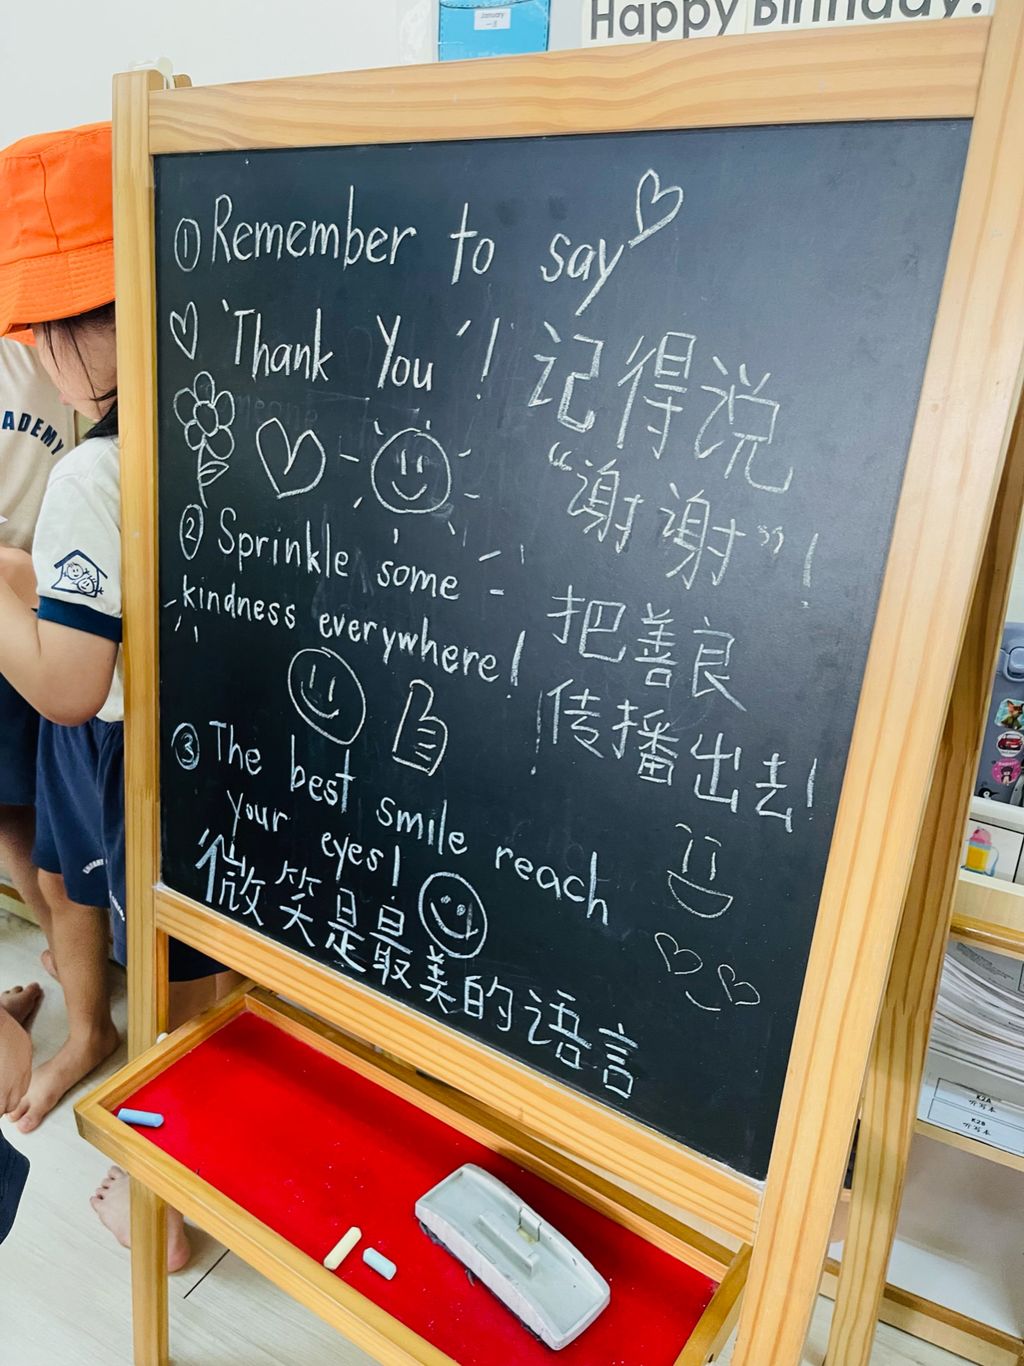 January
一月
Happy Birthday!
① Remember to say
'Thank You'!
记得说
“谢谢”!
② Sprinkle some
kindness everywhere!
把善良
传播出去!
③ The best smile reach
your eyes!
微笑是最美的语言
ADEMY
K2A
听写本
K2B
听写本